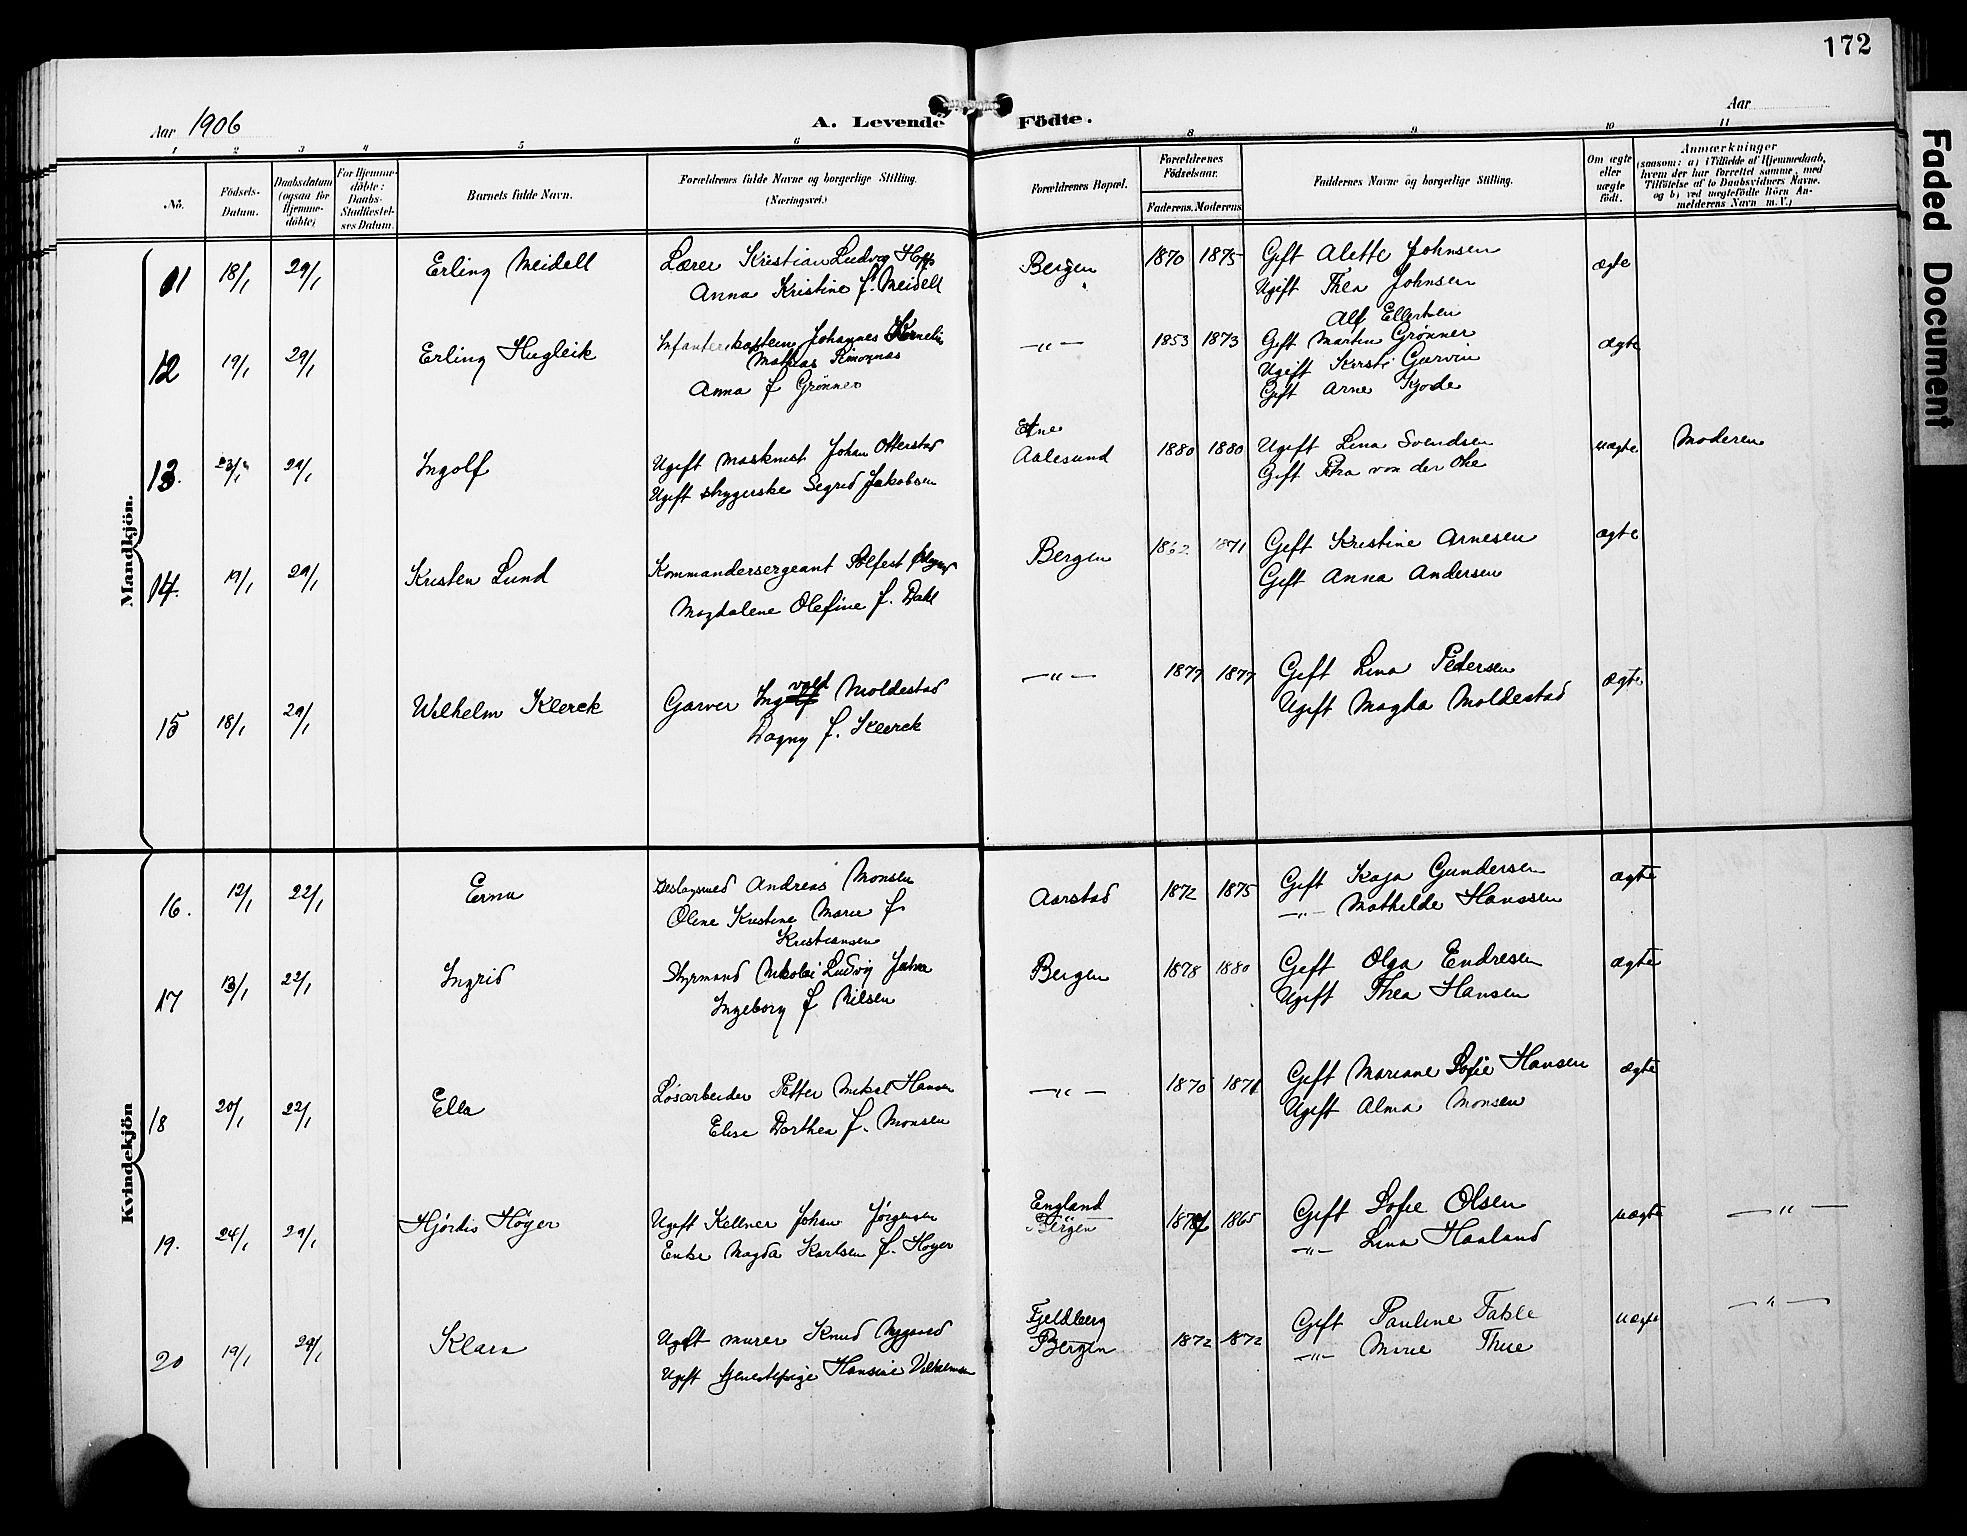 172
Aar 1906
A. Levende Födte.
Aar
1 2 3 4 5 6 8 9 10 11
No.
Födsels-Datum.
Daabsdatum (ogsaa for Hjemme-döbte)
For Hjemme-döbte: Daabs-Stadfæstel-ses Datum.
Barnets fulde Navn.
Forældrenes fulde Navne og borgerlige Stilling.
(Næringsvei.)
Forældrenes Bopæl.
Forældrenes Födselsaar.
Faderens. Moderens
Faddernes Navne og borgerlige Stilling.
Om ægte eller uægte födt.
Anmærkninger
(saasom: a) i Tilfælde af Hjemmedaab, hvem der har forrettet samme, med Tilföielse af to Daabsvidners Navne, og b) ved uægtefödte Börn An-melderens Navn m. V.)
Mandkjön.
11 18/1 29/1 Erling Meidell Lærer Kristian Ludvig Bergen 1870 1875 Gift Alette Johnsen ægte
Anna Kristine f. Meidell Ugift Thea Johnsen
Alf Ellertsen
12 19/1 29/1 Erling Hugleik Infanterikaptein Johannes -"- 1853 1873 Gift Martin Grønner ægte
Mathias Simonnæs Ugift Kirsti Garvin
Anna f Grønner Gift Arne Kjode
Etne
13. 23/1 29/1 Ingolf Ugift Maskinist Johan Otterstad Aalesund 1880 1880 Ugift Lina Svendsen uægte Moderen
Ugift strygerske Sigrid Jakobsen Gift Petra von der Ohe
14. 19/1 29/1 Kristen Lund Kommandersergeant Bergen 1862 1871 Gift Kristine Arnesen ægte
Magdalene Olefine f. Dahl Gift Anna Andersen
15 18/1 29/1 Wilhelm Klerck Garver Ingvald Moldestad -"- 1877 1877 Gift Lina Pedersen ægte
Dagny f. Klerck Ugift Magda Moldestad
Kvindekjön
16. 12/1 22/1 Erna Andreas Monsen Aarstad 1872 1875 Gift Kaja Gundersen ægte
Oline Kristine Marie f -"- Mathilde Hanssen
Kristiansen
17 13/1 22/1 Ingrid Styrmand Nikolai Ludvig Bergen 1878 1880 Gift Olga Endresen ægte
Ingeborg f Nilsen Ugift Thea Hansen
18 20/1 22/1 Ella Løsarbeider Petter Mikal Hansen -"- 1870 1871 Gift Mariane Sofie Hansen ægte
Elise Dorthea f. Monsen Ugift Alma Monsen
England
19. 24/1 29/1 Hjørdis Høyer Ugift Kellner Johan Jørgensen Bergen 1865 Gift Sofie Olsen uægte -"-
Enke Magda Karlsen f. Høyer -"- Lina Haaland
Fjeldberg
20 19/1 29/1 Klara Ugift murer Knud Nygaard Bergen 1872 1872 Gift Pauline Takle uægte -"-
Ugift tjenestepige Hansine Vilhelmsen -"- Marie Thue
Faded Document